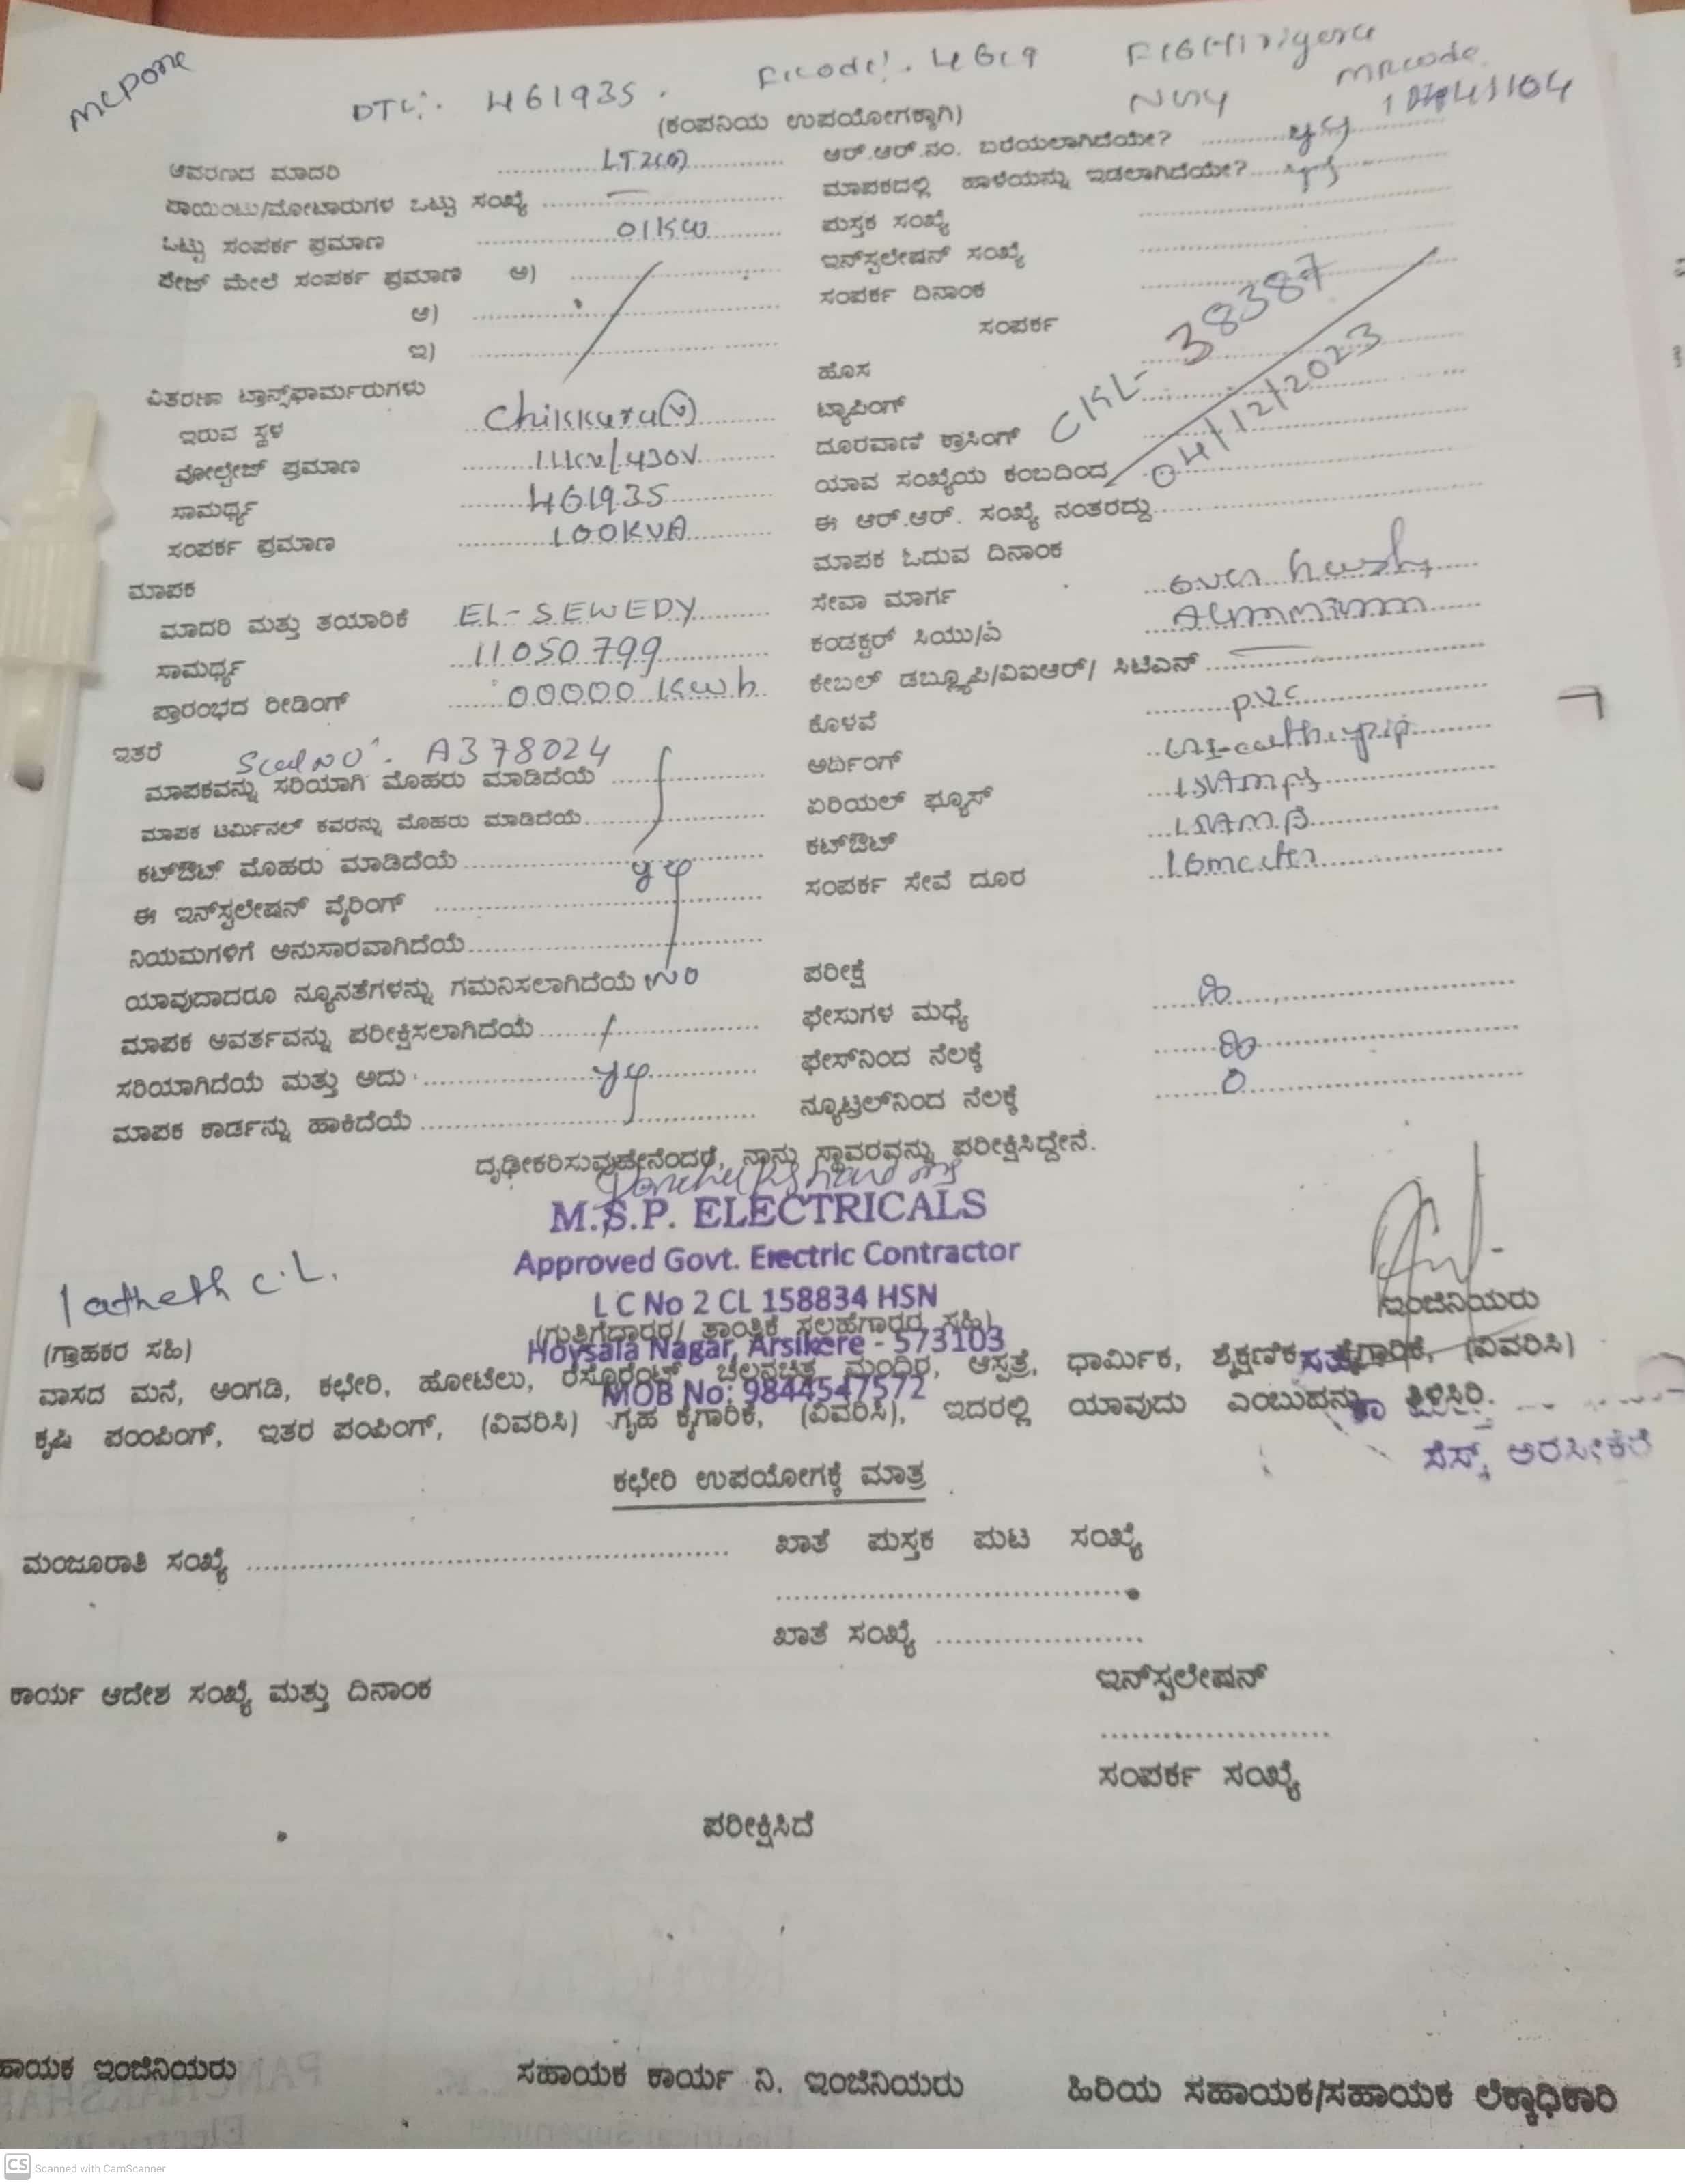 MCPONE
DTC:- 461935. Ficode:. 4619
NJY MRcode
(ಕಂಪನಿಯ ಉಪಯೋಗಕ್ಕಾಗಿ)
ಆವರಣದ ಮಾದರಿ LT2(a) ಆರ್.ಆರ್.ನಂ. ಬರೆಯಲಾಗಿದೆಯೇ? yes
ಪಾಯಿಂಟು/ಮೋಟಾರುಗಳ ಒಟ್ಟು ಸಂಖ್ಯೆ ಮಾಪಕದಲ್ಲಿ ಹಾಳೆಯನ್ನು ಇಡಲಾಗಿದೆಯೇ? yes
ಒಟ್ಟು ಸಂಪರ್ಕ ಪ್ರಮಾಣ 01KW ಪುಸ್ತಕ ಸಂಖ್ಯೆ
ಫೇಜ್ ಮೇಲೆ ಸಂಪರ್ಕ ಪ್ರಮಾಣ ಅ) ಇನ್‌ಸ್ಟಲೇಷನ್ ಸಂಖ್ಯೆ
ಆ) ಸಂಪರ್ಕ ದಿನಾಂಕ
ಇ) ಸಂಪರ್ಕ
CKL- 38387
04/12/2023
ವಿತರಣಾ ಟ್ರಾನ್ಸ್‌ಫಾರ್ಮರುಗಳು ಹೊಸ
ಇರುವ ಸ್ಥಳ Chikkuru(v) ಟ್ಯಾಪಿಂಗ್
ವೋಲ್ಟೇಜ್ ಪ್ರಮಾಣ 11kv/430V ದೂರವಾಣಿ ಕ್ರಾಸಿಂಗ್
ಸಾಮರ್ಥ್ಯ 461935 ಯಾವ ಸಂಖ್ಯೆಯ ಕಂಬದಿಂದ
ಸಂಪರ್ಕ ಪ್ರಮಾಣ 100KVA ಈ ಆರ್.ಆರ್. ಸಂಖ್ಯೆ ನಂತರದ್ದು
ಮಾಪಕ ಮಾಪಕ ಓದುವ ದಿನಾಂಕ
ಮಾದರಿ ಮತ್ತು ತಯಾರಿಕೆ EL-SEWEDY ಸೇವಾ ಮಾರ್ಗ over
ಸಾಮರ್ಥ್ಯ 11050799 ಕಂಡಕ್ಟರ್ ಸಿಯು/ಎ Aluminium
ಪ್ರಾರಂಭದ ರೀಡಿಂಗ್ 00000 Kwh ಕೇಬಲ್ ಡಬ್ಲ್ಯೂಪಿ/ವಿಐಆರ್/ ಸಿಟಿಎನ್
ಇತರೆ Seal NO:- A378024 ಕೊಳವೆ pvc
ಮಾಪಕವನ್ನು ಸರಿಯಾಗಿ ಮೊಹರು ಮಾಡಿದೆಯೆ ಅರ್ಥಿಂಗ್
ಮಾಪಕ ಟರ್ಮಿನಲ್ ಕವರನ್ನು ಮೊಹರು ಮಾಡಿದೆಯೆ ಏರಿಯಲ್ ಫ್ಯೂಸ್ 15Amps
ಕಟ್‌ಔಟ್ ಮೊಹರು ಮಾಡಿದೆಯೆ yes ಕಟ್‌ಔಟ್ 15Amps
ಈ ಇನ್‌ಸ್ಟಲೇಷನ್ ವೈರಿಂಗ್ ಸಂಪರ್ಕ ಸೇವೆ ದೂರ 16meter
ನಿಯಮಗಳಿಗೆ ಅನುಸಾರವಾಗಿದೆಯೆ
ಯಾವುದಾದರೂ ನ್ಯೂನತೆಗಳನ್ನು ಗಮನಿಸಲಾಗಿದೆಯೆ NO ಪರೀಕ್ಷೆ
ಮಾಪಕ ಆವರ್ತವನ್ನು ಪರೀಕ್ಷಿಸಲಾಗಿದೆಯೆ ಫೇಸುಗಳ ಮಧ್ಯೆ
ಸರಿಯಾಗಿದೆಯೆ ಮತ್ತು ಅದು yes ಫೇಸ್‌ನಿಂದ ನೆಲಕ್ಕೆ
ಮಾಪಕ ಕಾರ್ಡನ್ನು ಹಾಕಿದೆಯೆ ನ್ಯೂಟ್ರಲ್‌ನಿಂದ ನೆಲಕ್ಕೆ 0
ದೃಢೀಕರಿಸುವುದೇನೆಂದರೆ, ನಾನು ಸ್ಥಾವರವನ್ನು ಪರೀಕ್ಷಿಸಿದ್ದೇನೆ.
M.S.P. ELECTRICALS
Approved Govt. Electric Contractor
L C No 2 CL 158834 HSN
(ಗುತ್ತಿಗೆದಾರರ/ ತಾಂತ್ರಿಕ ಸಲಹೆಗಾರರ ಸಹಿ)
Hoysala Nagar, Arsikere - 573103
MOB No: 9844547572
ಇಂಜಿನಿಯರು
(ಗ್ರಾಹಕರ ಸಹಿ)
ವಾಸದ ಮನೆ, ಅಂಗಡಿ, ಕಛೇರಿ, ಹೋಟೆಲು, ರೆಸ್ಟೋರೆಂಟ್ ಚಲನಚಿತ್ರ ಮಂದಿರ, ಆಸ್ಪತ್ರೆ, ಧಾರ್ಮಿಕ, ಶೈಕ್ಷಣಿಕ ಕೈಗಾರಿಕೆ, (ವಿವರಿಸಿ)
ಕೃಷಿ ಪಂಪಿಂಗ್, ಇತರ ಪಂಪಿಂಗ್, (ವಿವರಿಸಿ) ಗೃಹ ಕೈಗಾರಿಕೆ, (ವಿವರಿಸಿ), ಇದರಲ್ಲಿ ಯಾವುದು ಎಂಬುದನ್ನು ತಿಳಿಸಿರಿ.
ಸೆಸ್ಕ್ ಅರಸೀಕೆರೆ
ಕಛೇರಿ ಉಪಯೋಗಕ್ಕೆ ಮಾತ್ರ
ಮಂಜೂರಾತಿ ಸಂಖ್ಯೆ ಖಾತೆ ಪುಸ್ತಕ ಪುಟ ಸಂಖ್ಯೆ
ಖಾತೆ ಸಂಖ್ಯೆ
ಕಾರ್ಯ ಆದೇಶ ಸಂಖ್ಯೆ ಮತ್ತು ದಿನಾಂಕ ಇನ್‌ಸ್ಟಲೇಷನ್
ಸಂಪರ್ಕ ಸಂಖ್ಯೆ
ಪರೀಕ್ಷಿಸಿದೆ
ಹಾಯಕ ಇಂಜಿನಿಯರು ಸಹಾಯಕ ಕಾರ್ಯ ನಿ. ಇಂಜಿನಿಯರು ಹಿರಿಯ ಸಹಾಯಕ/ಸಹಾಯಕ ಲೆಕ್ಕಾಧಿಕಾರಿ
CS Scanned with CamScanner